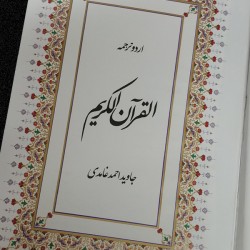 اردو ترجمہ
القرآن الکریم
جاوید احمد غامدی